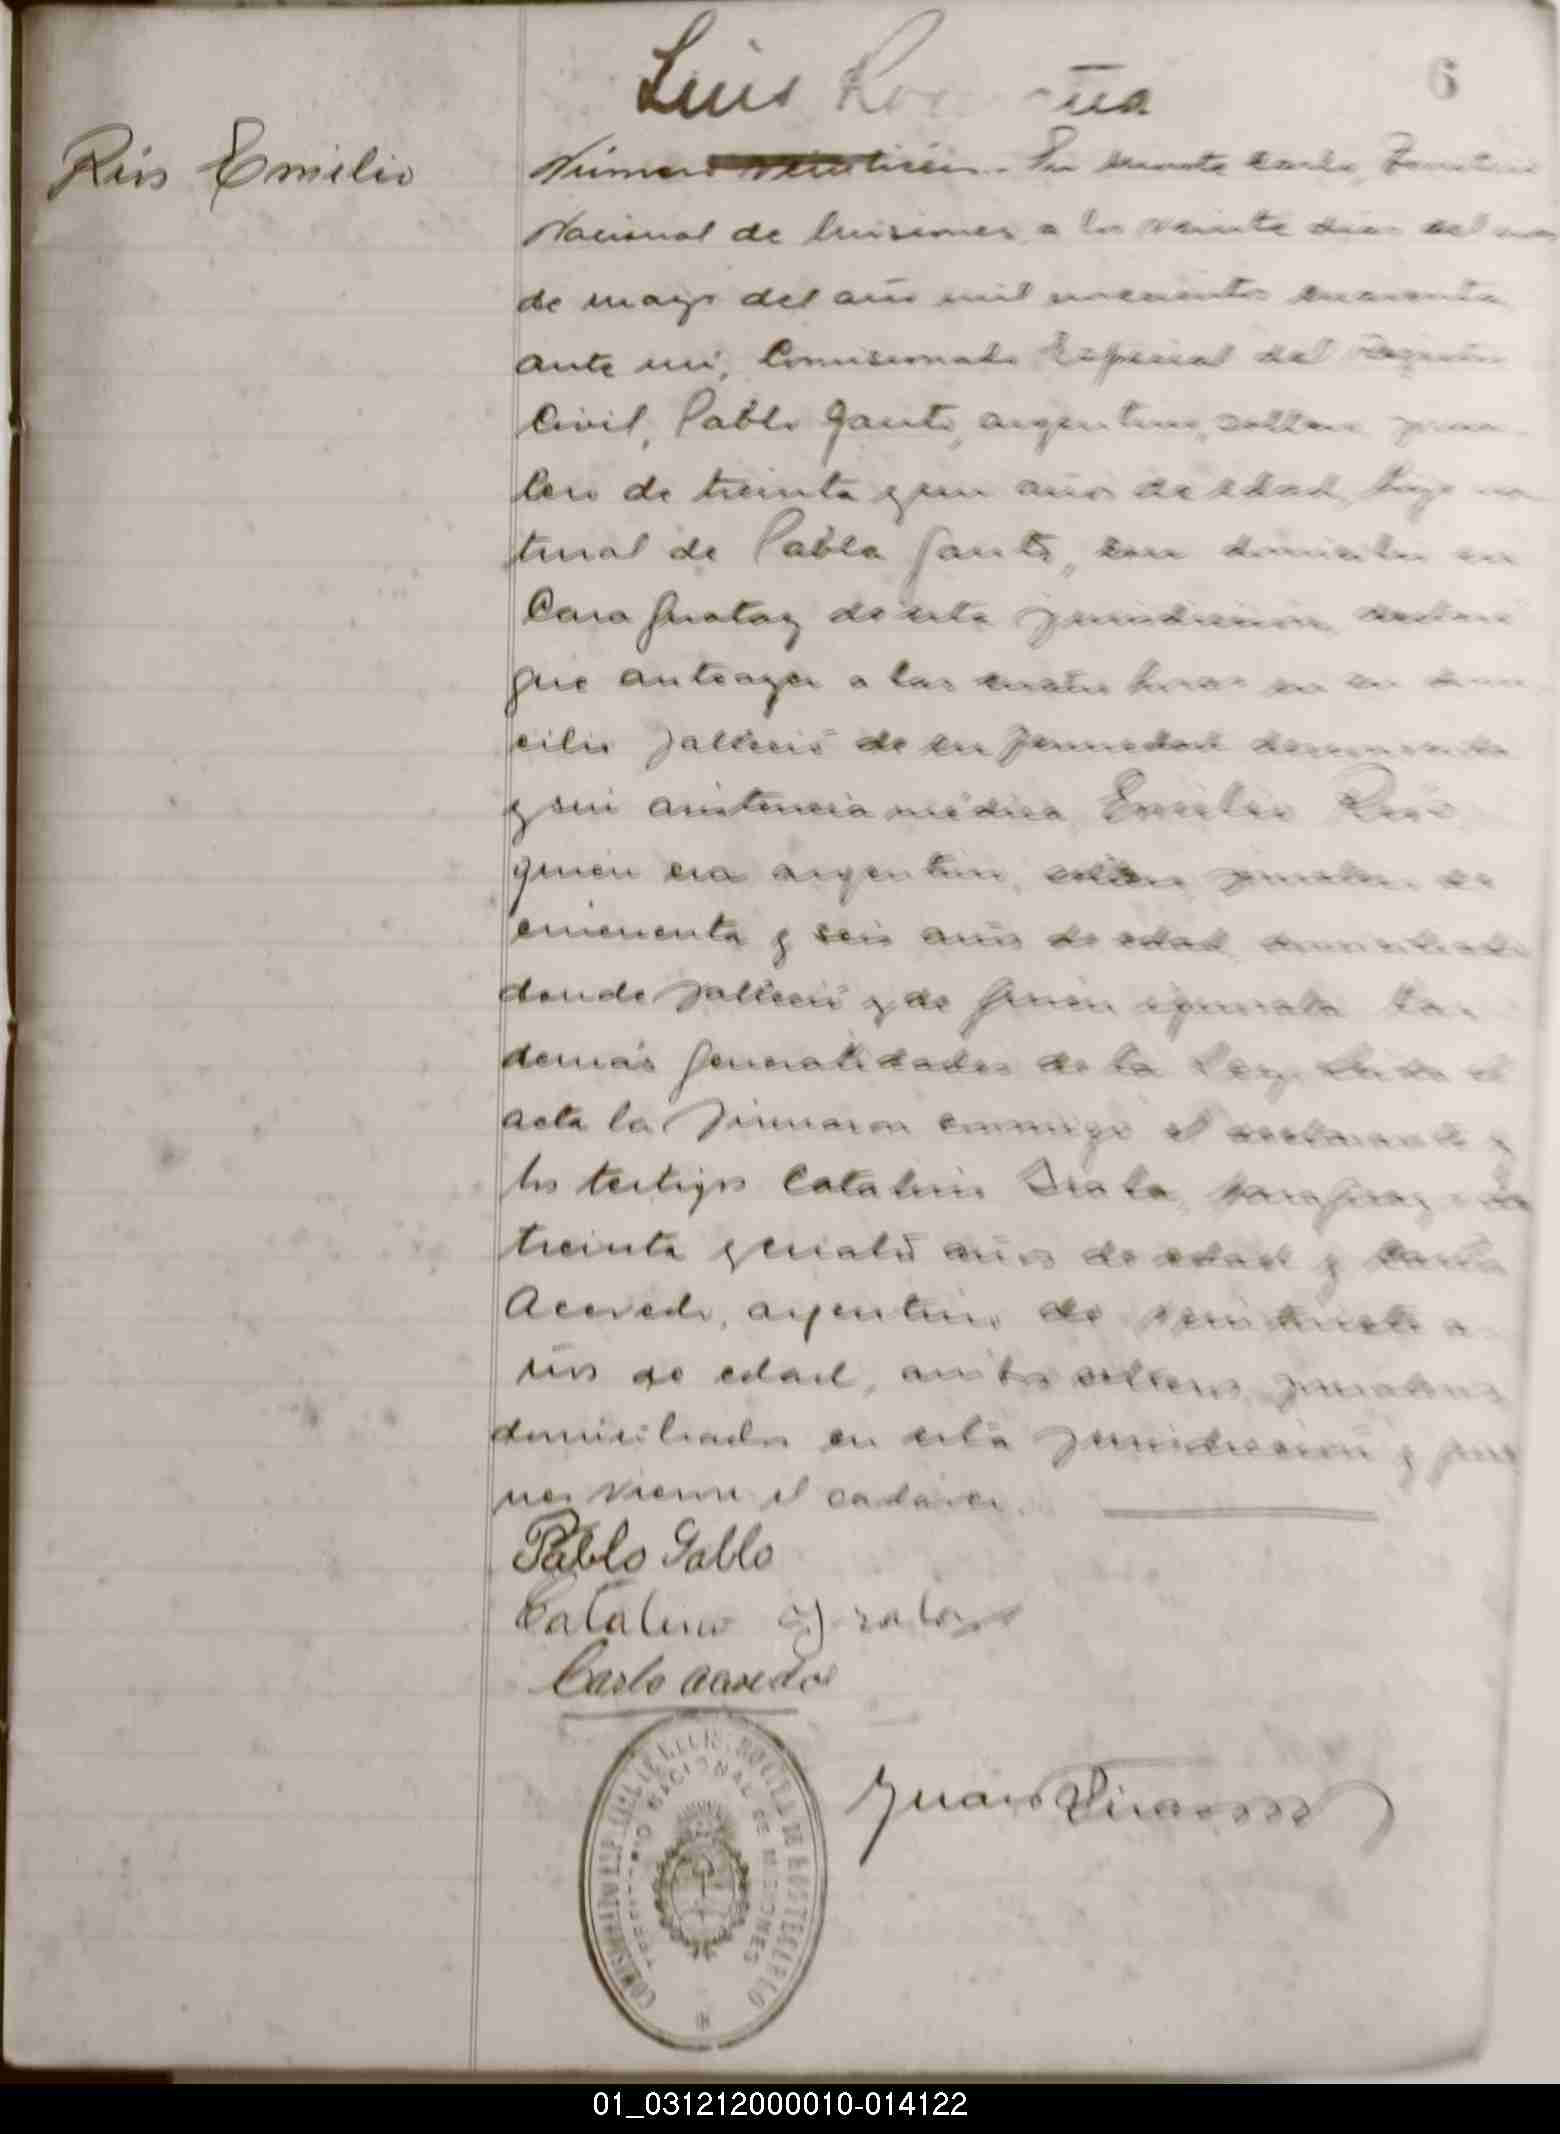 Luis
6
Rios Emilio
Número En Monte Carlo, Territorio
Nacional de Misiones a los veinte dias del mes
de mayo del año mil novecientos cuarenta
ante mi, Comisionado Especial del Registro
Civil, Pablo argentino, soltero jorna-
lero de treinta y un años de edad, hijo na
tural de Pabla con domicilio en
Caraguatay de esta jurisdiccion declaró
que anteayer a las cuatro horas en su domi
cilio falleció de enfermedad desconocida
y sin asistencia médica Emilio Rios
quien era argentino, soltero jornalero de
cincuenta y seis años de edad domiciliado
donde falleció y de quien ignoraba las
demás generalidades de la Ley. Leida el
acta la firmaron conmigo el declarante y
los testigos Catalino de
treinta y cuatro años de edad y Carlo
Acevedo, argentino de veintisiete a
ños de edad, ambos solteros, jornaleros
domiciliados en esta jurisdiccion y quie
nes vieron el cadaver.
Pablo Gallo
Catalino
Carlo Acevedo
Juan
TERRITORIO NACIONAL DE MISIONES
01_031212000010-014122